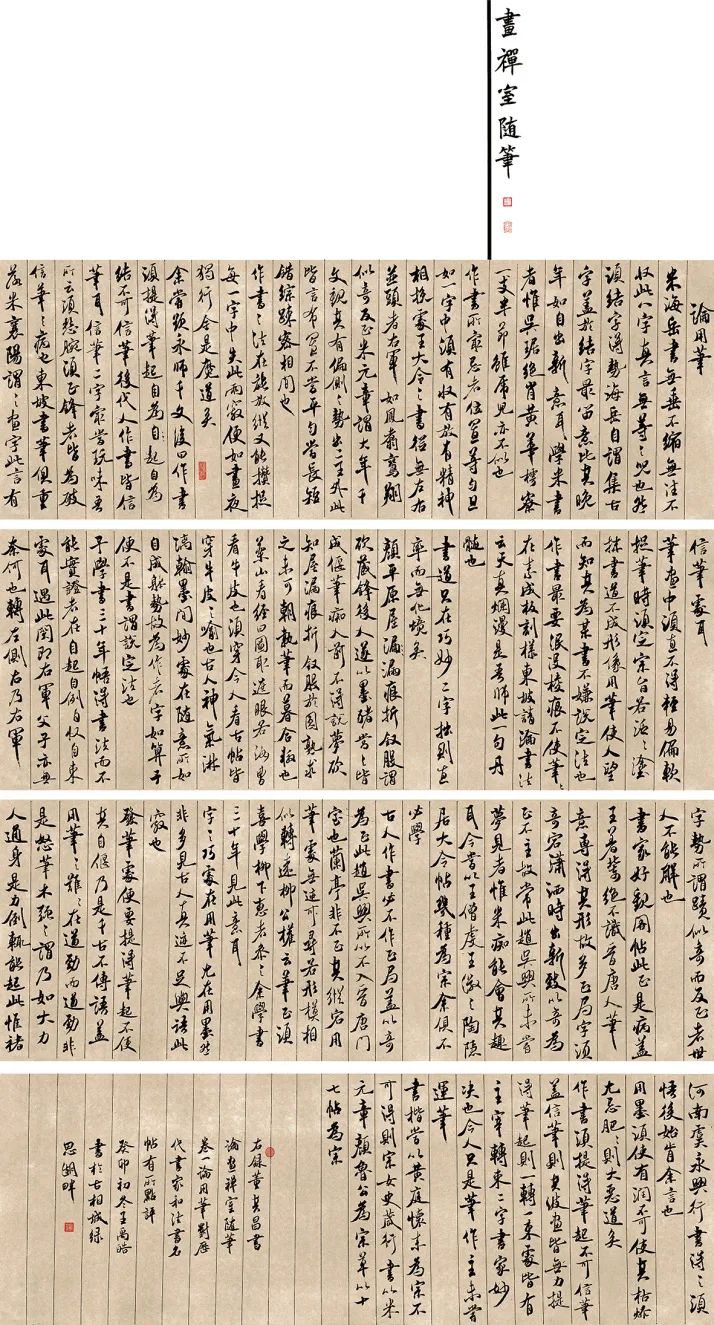 畫禪室随筆
論用筆
米海岳書無垂不縮無往不
収此八字真言無等之咒也然
須結字得勢海岳自謂集古
字蓋於結字最留意比其晚
年始自出新意耳學米書
者惟吳琚絕肖黃華樗寮
一支半節雖虎兒亦不似也
作書所最忌者位置等勻且
如一字中須有収有放有精神
相挽處王大令之書從無左右
並頭者右軍如鳳翥鸞翔
似奇反正米元章謂大年千
文觀其有偏側之勢出二王外此
皆言布置不當平勻當長短
錯綜踈密相間也
作書之法在能放縱又能攢捉
每一字中失此兩竅便如晝夜
獨行全是魔道矣
余嘗題永師千文後曰作書
須提得筆起自為起自為
結不可信筆後代人作書皆信
筆耳信筆二字最當玩味吾
所云須懸腕須正鋒者皆為破
信筆之病也東坡書筆俱重
落米襄陽謂之畫字此言有
信筆處耳
筆畫中須直不得輕易偏軟
捉筆時須定宗旨若泛泛塗
抹書道不成形像用筆使人望
而知其為某書不嫌說定法也
作書最要泯沒棱痕不使筆筆
在素成板刻樣東坡詩論書法
云天真爛漫是吾師此一句丹
髓也
書道只在巧妙二字拙則直
率而無化境矣
顏平原屋漏痕折釵股謂
欲藏鋒後人遂以墨豬當之皆
成偃筆痴人前不得說夢欲
知屋漏痕折釵股於圓熟求
之未可朝執筆而暮合轍也
藥山看經曰圖取遮眼若汝曹
看牛皮也須穿今人看古帖皆
穿牛皮之喻也古人神氣淋
漓翰墨間妙處在隨意所如
自成體勢故為作者字如算子
便不是書謂說定法也
予學書三十年悟得書法而不
能實證者在自起自倒自収自束
處耳過此關即右軍父子亦無
奈何也轉左側右乃右軍
字勢所謂蹟似奇而反正者世
人不能解也
書家好觀閣帖此正是病蓋
王著輩絕不識晉唐人筆
意專得其形故多正局字須
奇宕瀟洒時出新致以奇為
正不主故常此趙吳興所未嘗
夢見者惟米痴能會其趣
耳今當以王僧虔王徽之陶隱
居大令帖幾種為宗余俱不
必學
古人作書必不作正局蓋以奇
為正此趙吳興所以不入晉唐門
室也蘭亭非不正其縱宕用
筆處無迹可尋若形模相
似轉遠柳公權云筆正須
喜學柳下惠者參之余學書
三十年見此意耳
字之巧處在用筆尤在用墨然
非多見古人真迹不足與語此
竅也
發筆處便要提得筆起不使
其自偃乃是千古不傳語蓋
用筆之難難在遒勁而遒勁非
是怒筆木強之謂乃如大力
人通身是力倒輒能起此惟褚
河南虞永興行書得之須
悟後始肯余言也
用墨須使有潤不可使其枯燥
尤忌肥肥則大惡道矣
作書須提得筆起不可信筆
蓋信筆則其波畫皆無力提
得筆起則一轉一束處皆有
主宰轉束二字書家妙
決也今人只是筆作主未嘗
運筆
書楷當以黃庭懷素為宗不
可得則宗女史箴行書以米
元章顏魯公為宗草以十
七帖為宗
右録董其昌書
論畫禪室随筆
卷一論用筆對歷
代書家和法書名
帖有所點評
癸卯初冬王禹皓
書於古相城緑
思湖畔